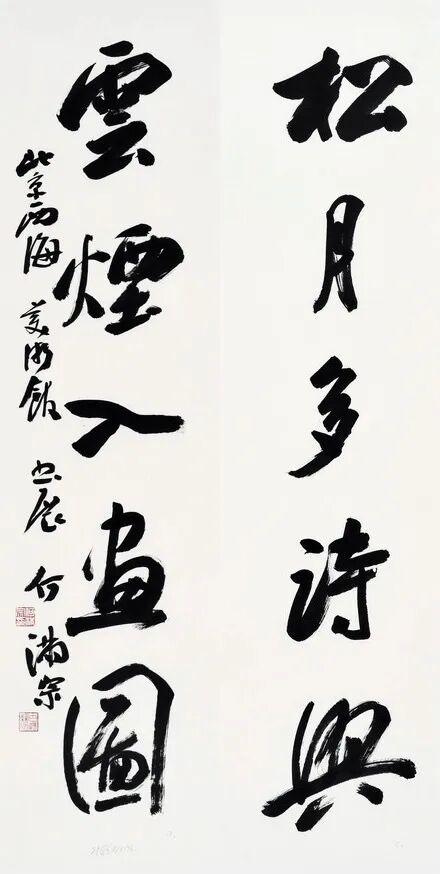 松月多詩興
雲煙入畫圖
北京西海美術館書展何滿宗